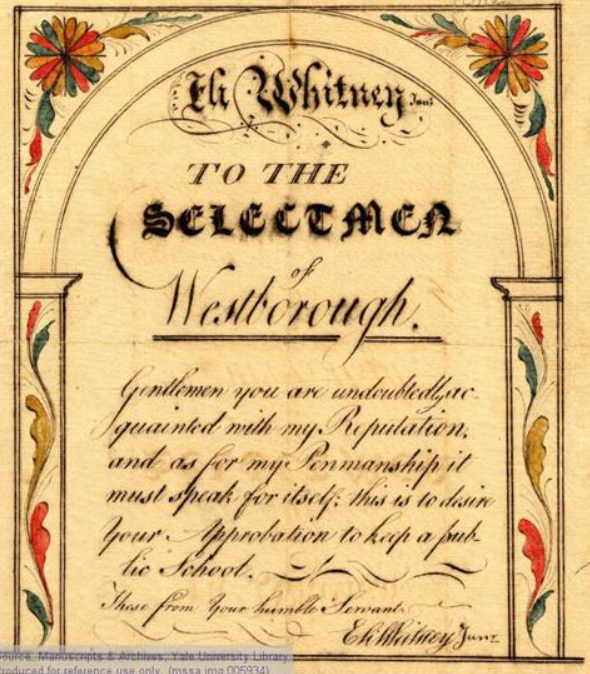 Eli Whitney Junr
TO THE
SELECTMEN
of
Westborough.
Gentlemen you are undoubtedly ac-
quainted with my Reputation,
and as for my Penmanship it
must speak for itself; this is to desire
Your Approbation to keep a pub-
lic School.
These from Your humble Servant.
Eli Whitney Junr
Source: Manuscripts & Archives, Yale University Library
roduced for reference use only. (mssa.img.005934)